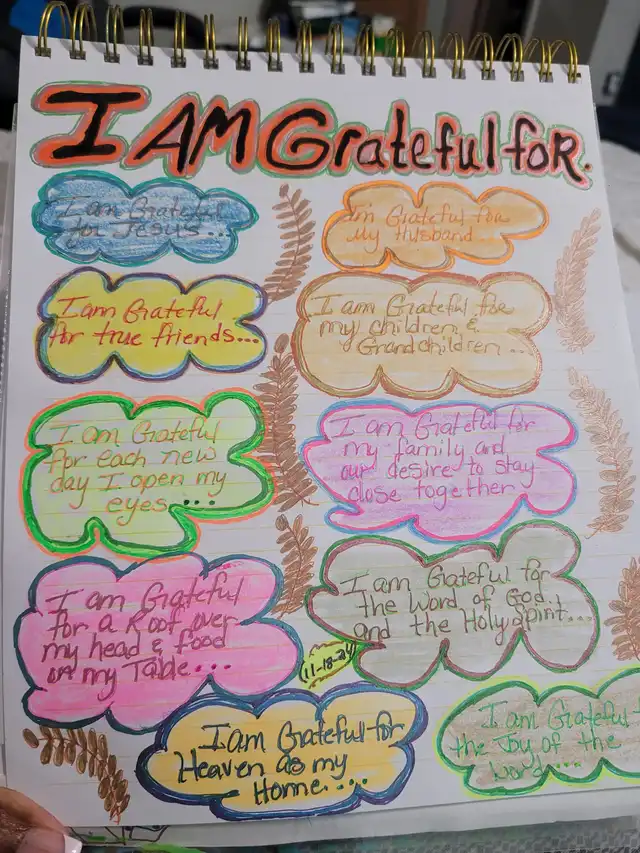 I AM Grateful foR.
I am Grateful
for Jesus...
I'm Grateful for
My Husband...
I am Grateful
for true friends...
I am Grateful for
my children &
Grandchildren...
I am Grateful
for each new
day I open my
eyes...
I am Grateful for
my family and
our desire to stay
close together
I am Grateful
for a Roof over
my head & food
on my Table...
I am Grateful for
the Word of God
and the Holy Spirit...
11-18-24
I am Grateful for
Heaven as my
Home....
I am Grateful f
the Joy of the
Word...